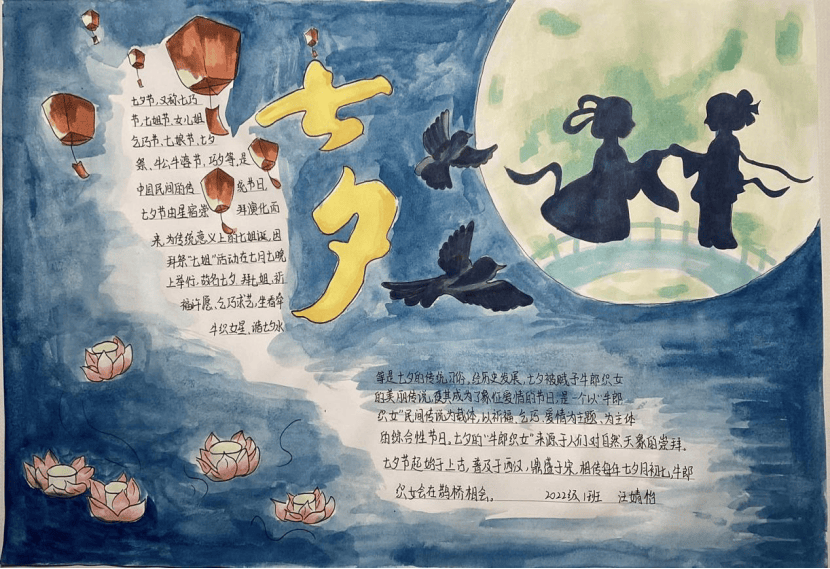 七夕
七夕节,又称七巧
节、七姐节、女儿节、
乞巧节、七娘节、七夕
祭、牛公牛婆节、巧夕等,是
中国民间的传统节日,
七夕节由星宿崇拜演化而
来,为传统意义上的七姐诞,因
拜祭“七姐”活动在七月七晚
上举行,故名七夕,拜七姐、祈
福许愿、乞巧求艺、坐看牵
牛织女星、储七夕水
等是七夕的传统习俗,经历史发展,七夕被赋予牛郎织女
的美丽传说,使其成为了象征爱情的节日,是一个以“牛郎
织女”民间传说为载体,以祈福、乞巧、爱情为主题、为主体
的综合性节日,七夕的“牛郎织女”来源于人们对自然天象的崇拜.
七夕节起始于上古,普及于西汉,鼎盛于宋,相传每年七月初七,牛郎
织女会在鹊桥相会。 2022级1班 汪婧怡